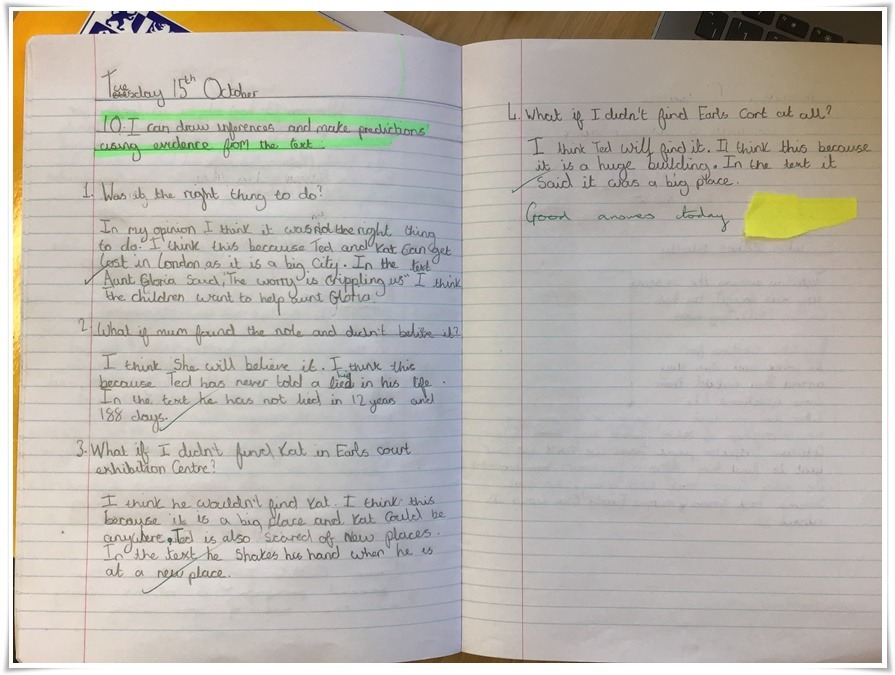 Tuesday 15th October
10. I can draw inferences and make predictions
using evidence from the text.
1. Was it the right thing to do?
In my opinion I think it was not the right thing
to do. I think this because Ted and Kat can get
lost in London as it is a big city. In the text
Aunt Gloria said, "The worry is crippling us" I think
the children want to help aunt Gloria.
2. What if mum found the note and didn't belive it?
I think she will believe it. I think this
because Ted has never told a lied in his life.
In the text he has not lied in 12 years and
188 days.
3. What if I didn't find Kat in Earls court
exhibition Centre?
I think he wouldn't find Kat. I think this
because it is a big place and Kat could be
anywhere. Ted is also scared of new places.
In the text he shakes his hand when he is
at a new place.
4. What if I didn't find Earls Cort at all?
I think Ted will find it. I think this because
it is a huge building. In the text it
said it was a big place.
Good answers today